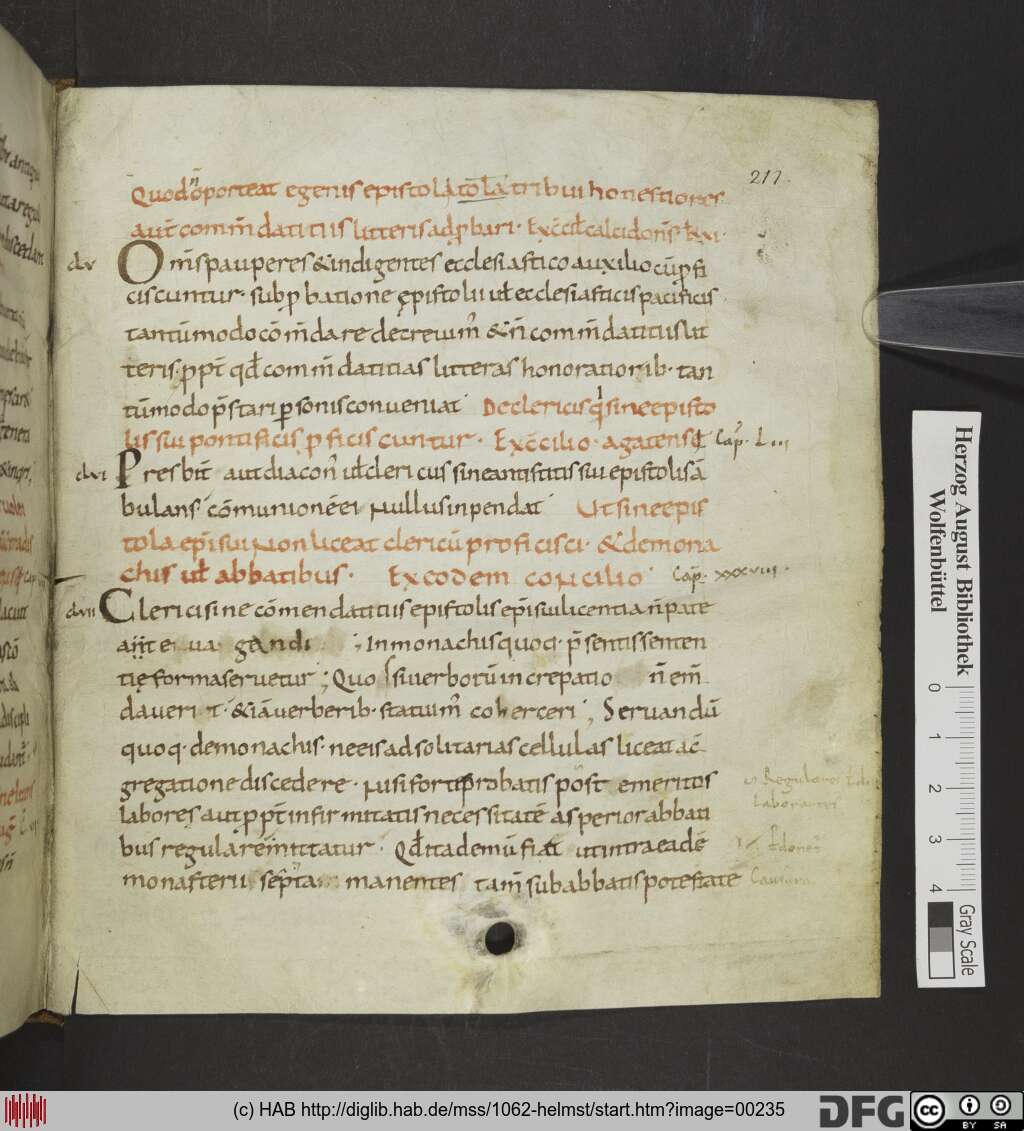 217
Quod n̄ oporteat egenis epistola tola tribui honestiores
aut̄ com̄m̄ datitiis litteris adp̱bari · Ex c̄cił calcidoneñs t̄ xi ·
clv Om̄s pauperes & indigentes ecclesiastico auxilio cū p̱fi
ciscuntur · sub p̱batione ępistolii ut ecclesiasticis pacificis ·
tantūmodo cōm̄dare decreuim̄ & n̄ com̄m̄datitiis lit
teris · p̱p̄t qđ com̄m̄datitias litteras honoratiorib · tan
tūmodo p̄stari p̱sonis conueniat De clericis q̄ sine episto
lis sui pontificis p̱ficiscuntur · Ex c̄cilio · agatense Cap̄ · L iii
clvi Presbit̄ aut diacon̄ ut clericus sine antistitis sui epistolis ā
bulans cōmunionē ei Nullus inpendat Ut sine epis
tola epi̅ sui Non liceat clericū proficisci · & de mona
chis ut abbatibus · Ex eodem concilio Cap̄ · xxxviii ·
clvii Clerici sine cōmendatitiis epistolis epi̅ sui licentia n̄ pate
at euagandi ; In monachis quoq · p̄sentis senten
tię forma seruetur ; Quos si uerborū increpatio n̄ em̄
dauerit · & iā uerberib · statuim̄ coherceri ; Seruandū
quoq · de monachis · ne eis ad solitarias cellulas liceat a c̄
gregatione discedere · Nisi forte probatis post emeritos
labores aut p̱p̄t infirmitatis necessitatē asperior ab abbati
bus regula remittatur · Qđ ita demū fiat ut intra eadē
monasterii septa manentes tam̄ sub abbatis potestate
Herzog August Bibliothek
Wolfenbüttel
0 1 2 3 4
Gray Scale
(c) HAB http://diglib.hab.de/mss/1062-helmst/start.htm?image=00235
DFG
cc BY SA